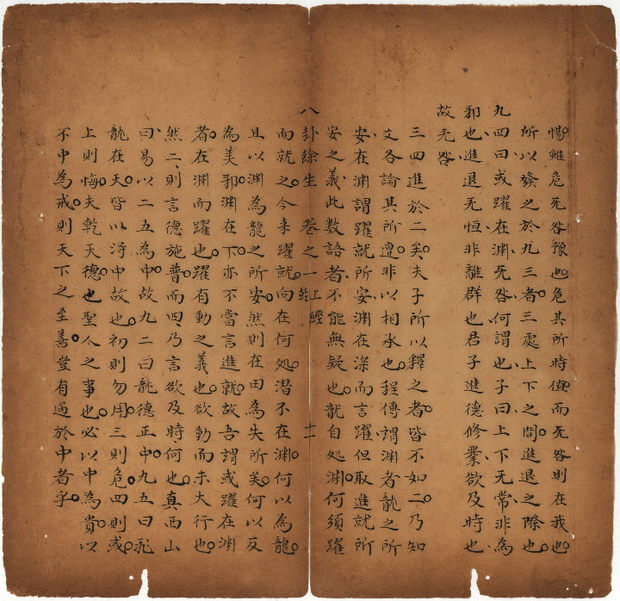 惕雖危无咎豫也危其所時值而无咎則在我也
所以發之於九三者三處上下之間進退之際也
九四曰或躍在淵无咎何謂也子曰上下无常非為
邪也進退无恒非離群也君子進德修業欲及時也
故无咎
三四進於二矣夫子所以釋之者皆不如二乃知
爻各論其所遭非以相承也程傳謂淵者龍之所
安在淵謂躍就所安淵在深而言躍但取進就所
安之義此數語者不能無疑也龍自处淵何須躍
八卦餘生 卷之一 乾 上經 十一
而就之今来躍就向在何処潜不在淵何以為龍
且以淵為龍之所安然則在田為失所矣何以反
為美邪淵在下亦不當言進就故吾謂或躍在淵
者在淵而躍也躍有動之義也欲動而未大行也
然二則言德施普而四乃言欲及時何也真西山
曰易以二五為中故九二曰龍德正中九五曰飛
龍在天皆以得中故也初則勿用三則危四則或
上則悔夫乾天德也聖人之事也必以中為貴以
不中為戒則天下之至善豈有過於中者乎